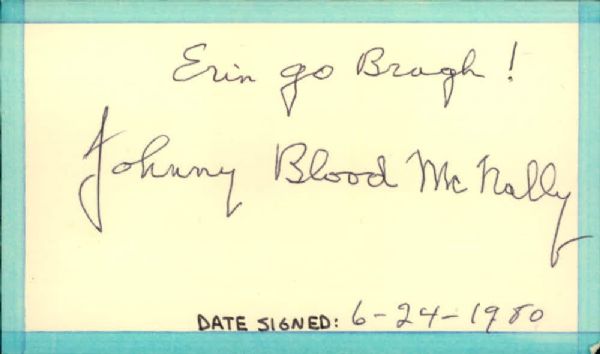 Erin go Bragh!
Johnny Blood McNally
DATE SIGNED: 6-24-1980